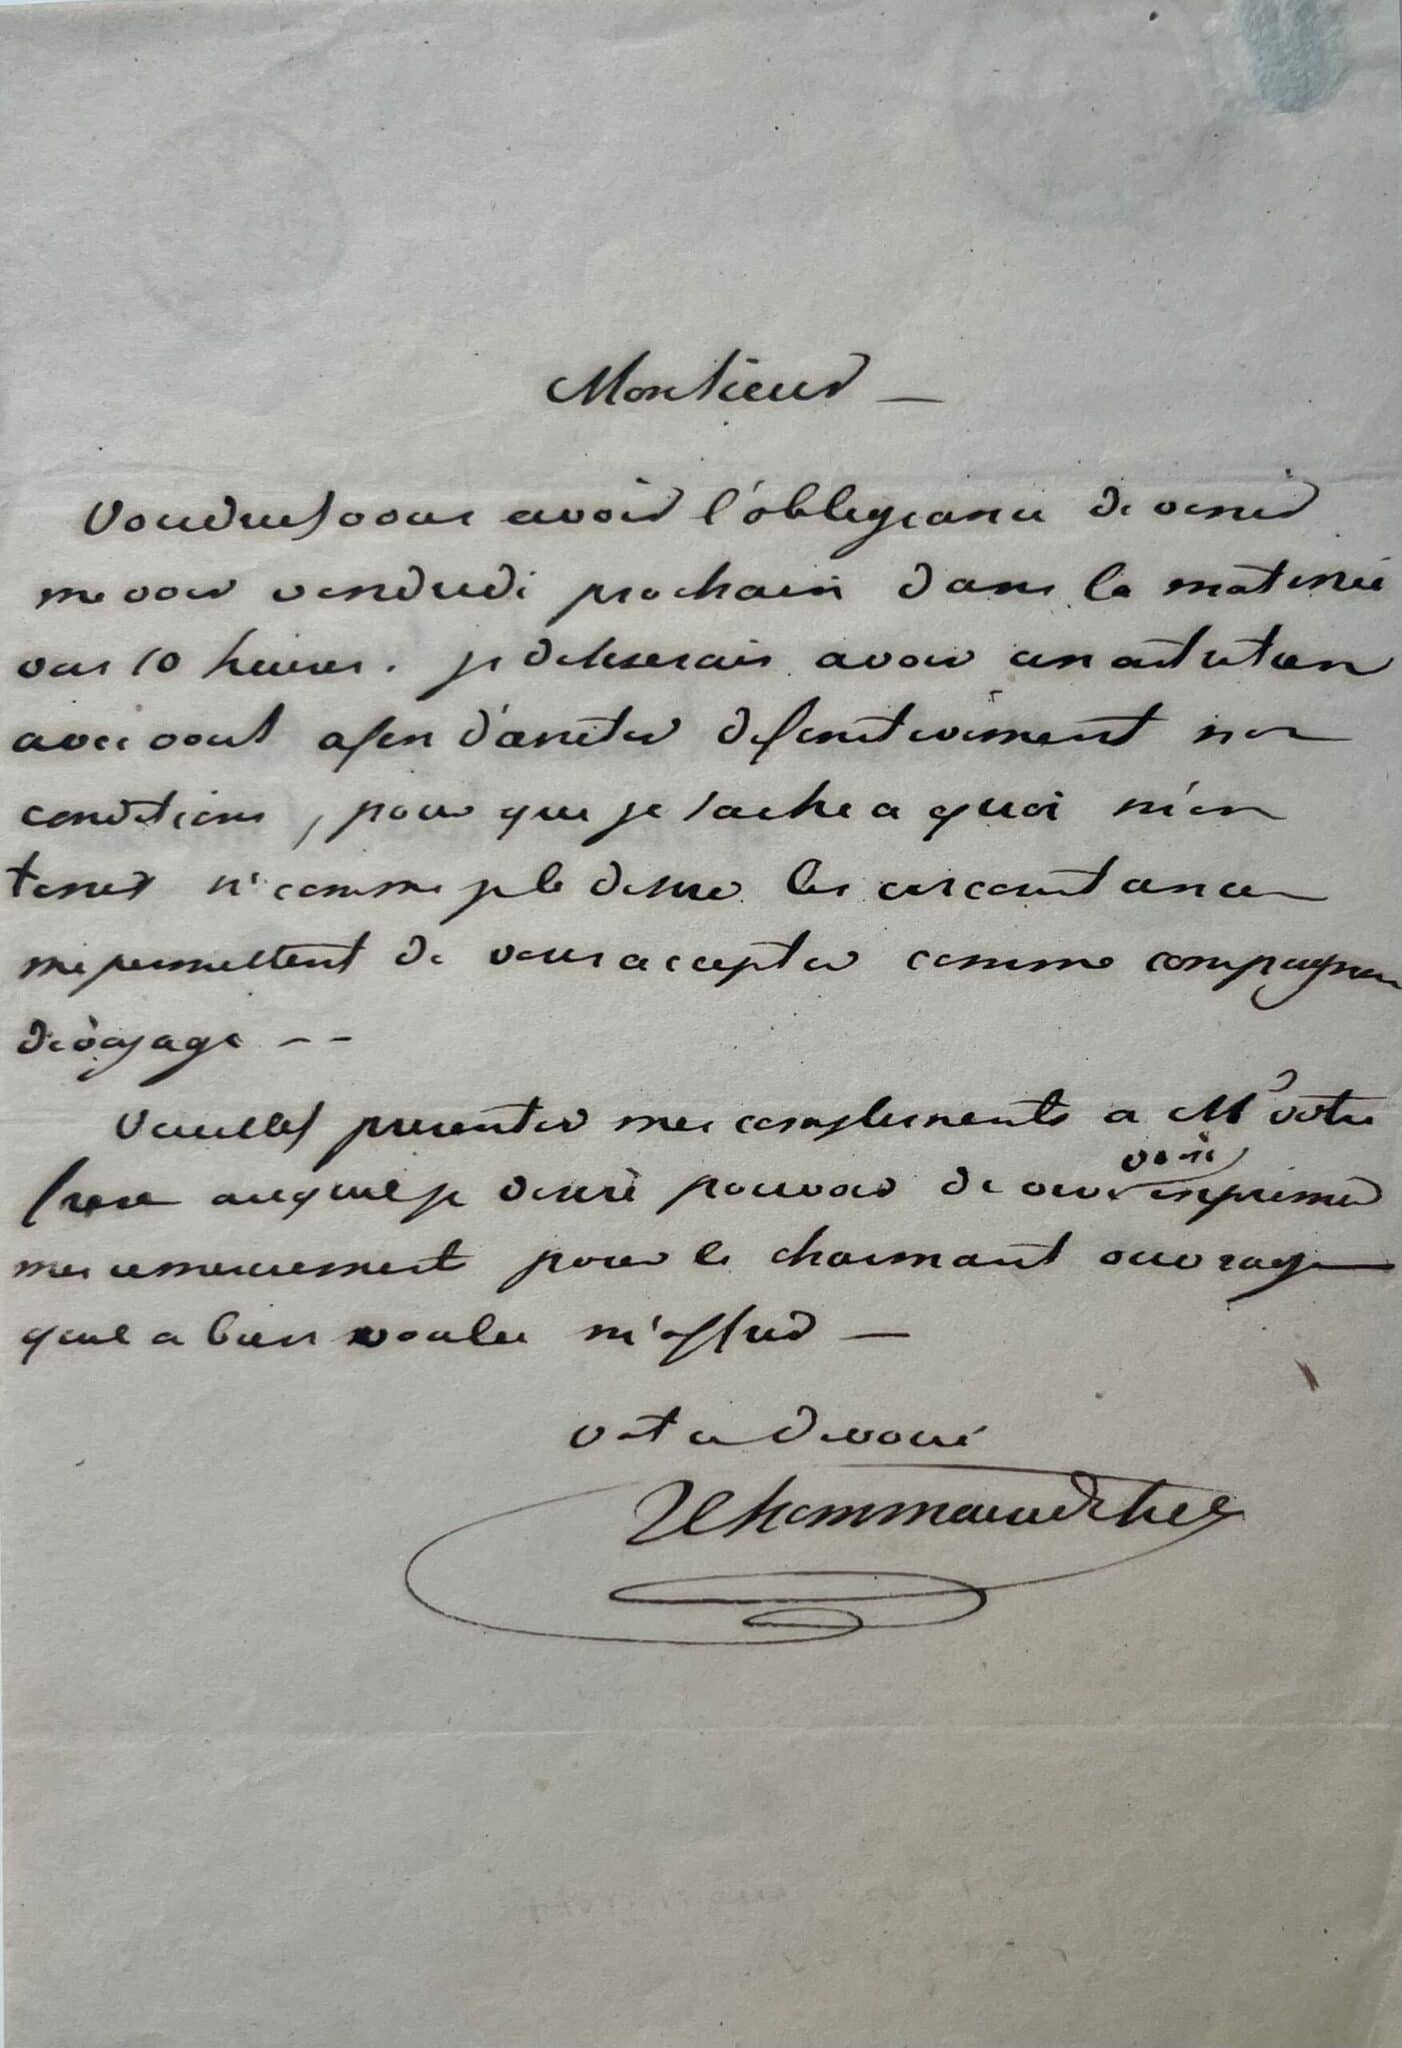 Monsieur —
Voudries vous avoir l'obligeance de venir
me voir vendredi prochain dans la matinée
vers 10 heures. je desirerais avoir un entretien
avec vous afin d'arreter definitivement nos
conditions, pour que je sache a quoi m'en
tenir si comme je le desire les circonstances
me permettent de vous accepter comme compagnon
de voyage --
Veuilles presenter mes compliments a Mr votre
frere auquel je desire pouvoir de vive voix exprimer
mes remerciements pour le charmant ouvrage
quil a bien voulu m'offrir —
votre devoué